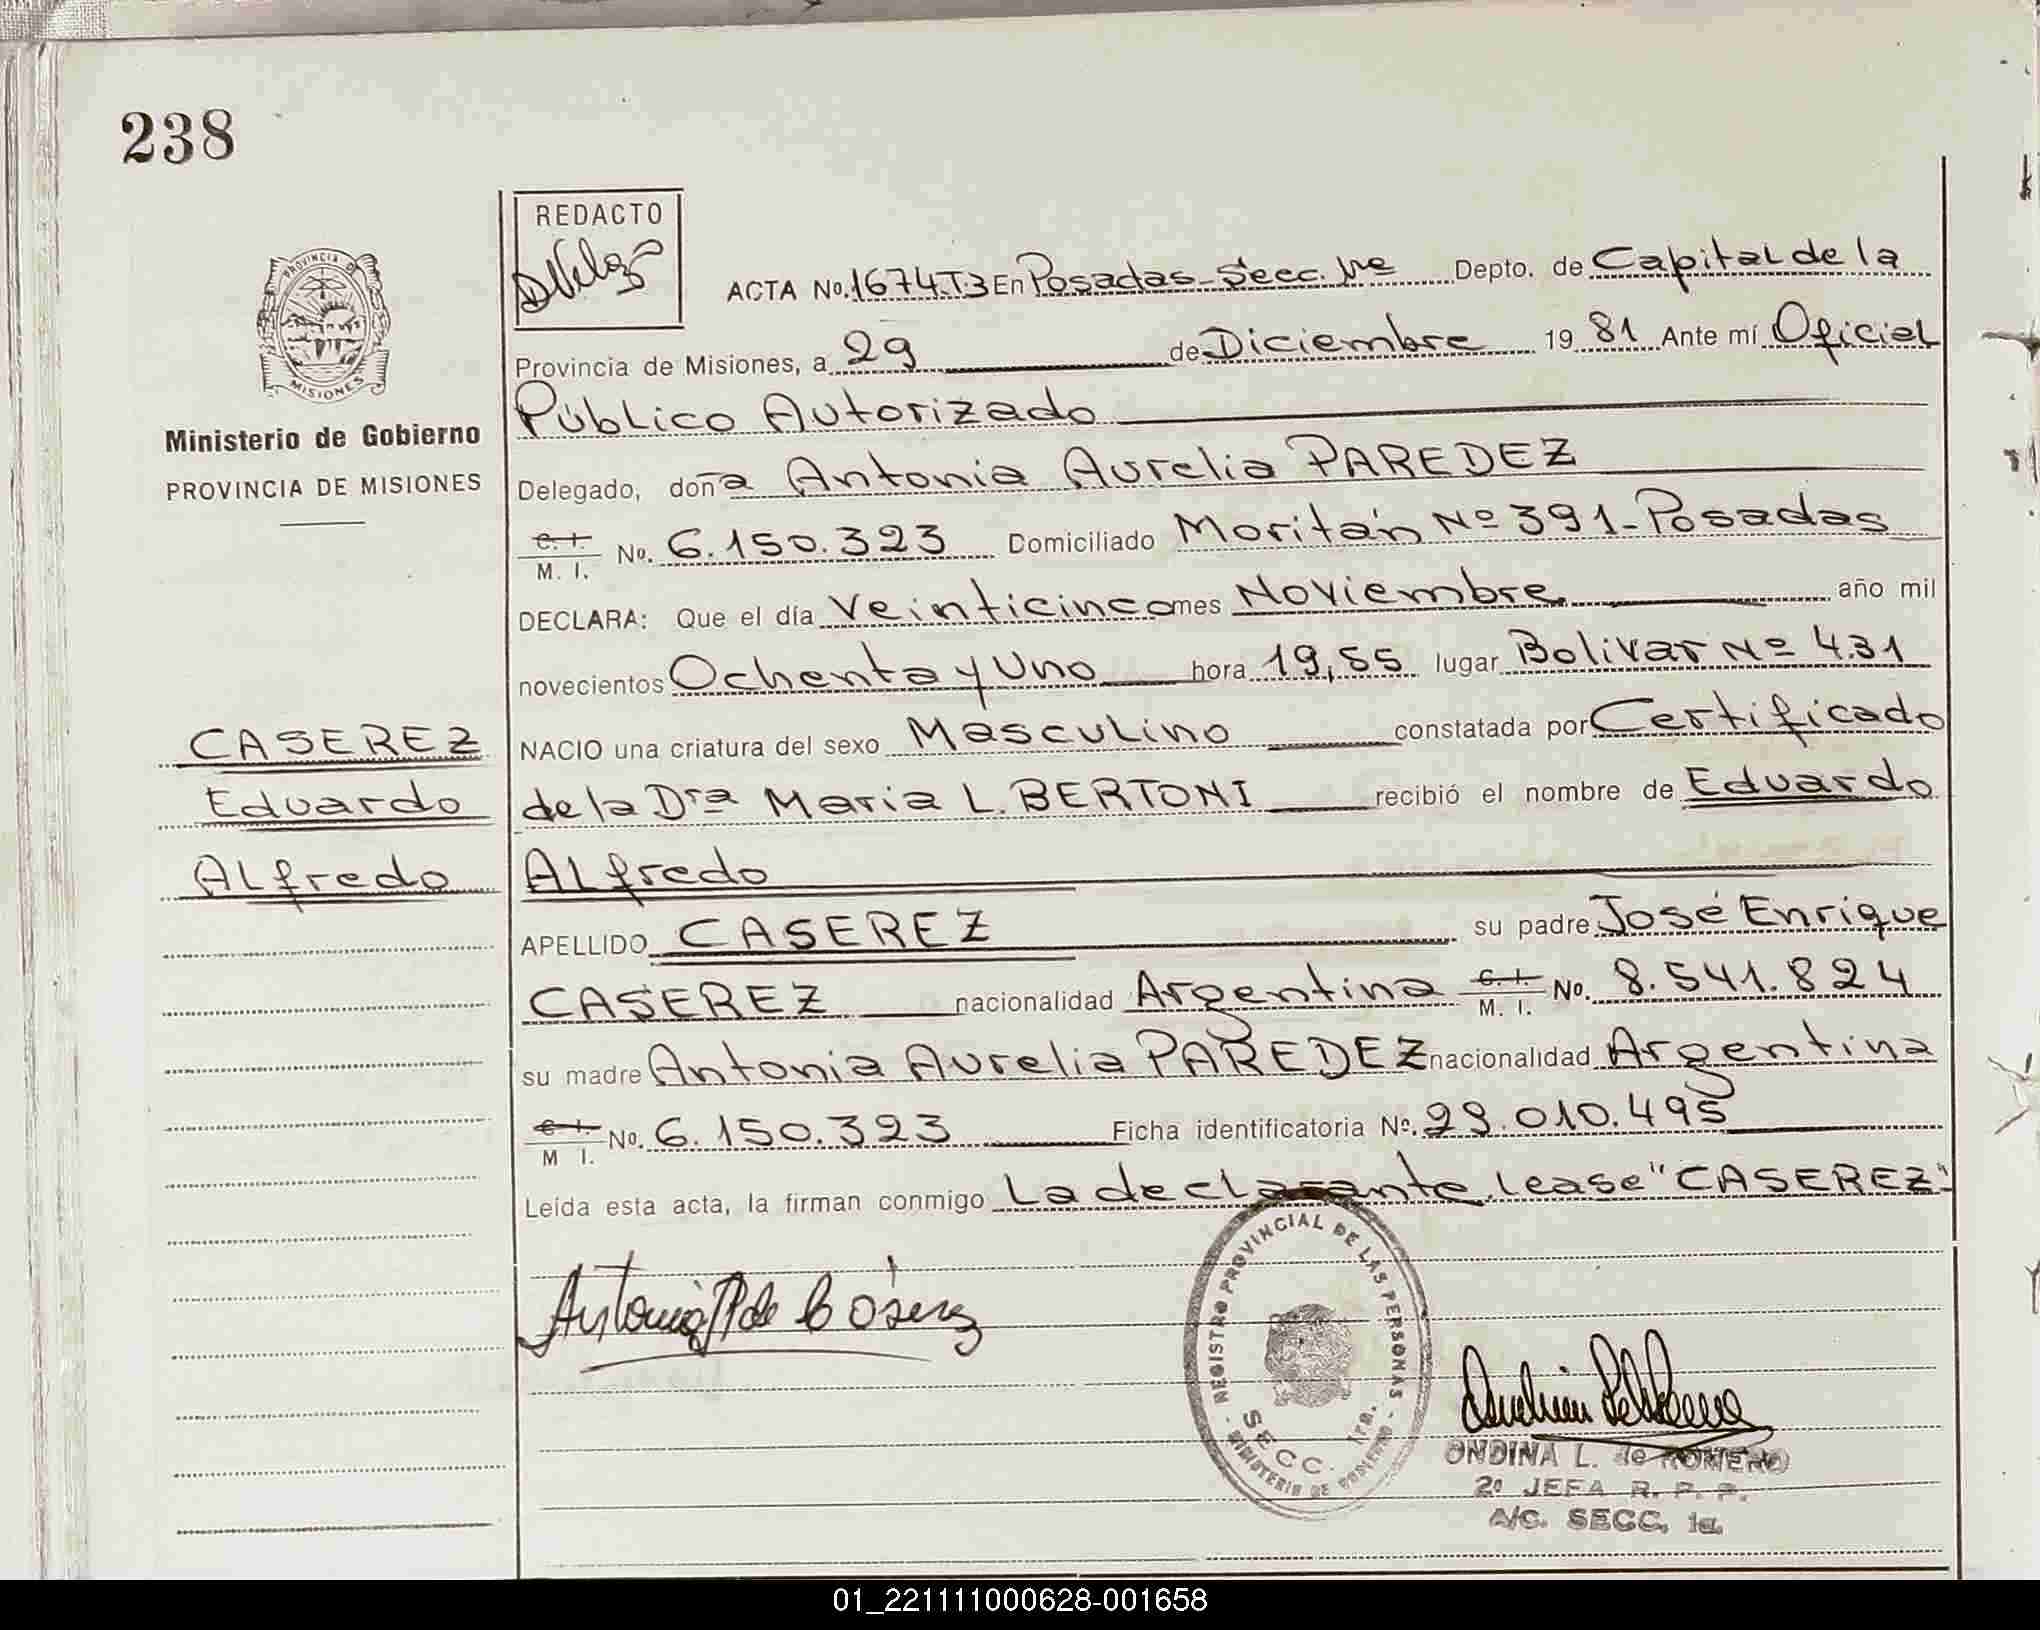 238
REDACTO
PROVINCIA DE
MISIONES
ACTA No. 1674.T3 En Posadas-Secc. 1ra Depto. de Capital de la
Provincia de Misiones, a 29 de Diciembre 19 81 Ante mí Oficial
Público Autorizado
Ministerio de Gobierno
PROVINCIA DE MISIONES
Delegado, doña Antonia Aurelia PAREDEZ
C. I.
M. I. No. 6.150.323 Domiciliado Moritán Nº 391-Posadas
DECLARA: Que el día veinticinco mes Noviembre año mil
novecientos Ochenta y Uno hora 19,55 lugar Bolivar Nº 431
NACIO una criatura del sexo Masculino constatada por Certificado
de la Dra Maria L. BERTONI recibió el nombre de Eduardo
Alfredo
CASEREZ
Eduardo
Alfredo
APELLIDO CASEREZ su padre José Enrique
CASEREZ nacionalidad Argentina C. I. M. I. No. 8.541.824
su madre Antonia Aurelia PAREDEZ nacionalidad Argentina
C. I.
M I. No. 6.150.323 Ficha identificatoria Nº. 29.010.495
Leída esta acta, la firman conmigo La declarante. lease "CASEREZ".
REGISTRO PROVINCIAL DE LAS PERSONAS
SECC. 1ra.
- MINISTERIO DE GOBIERNO -
ONDINA L. de ROMERO
2º JEFA R. P. P.
A/C. SECC. 1a.
01_221111000628-001658